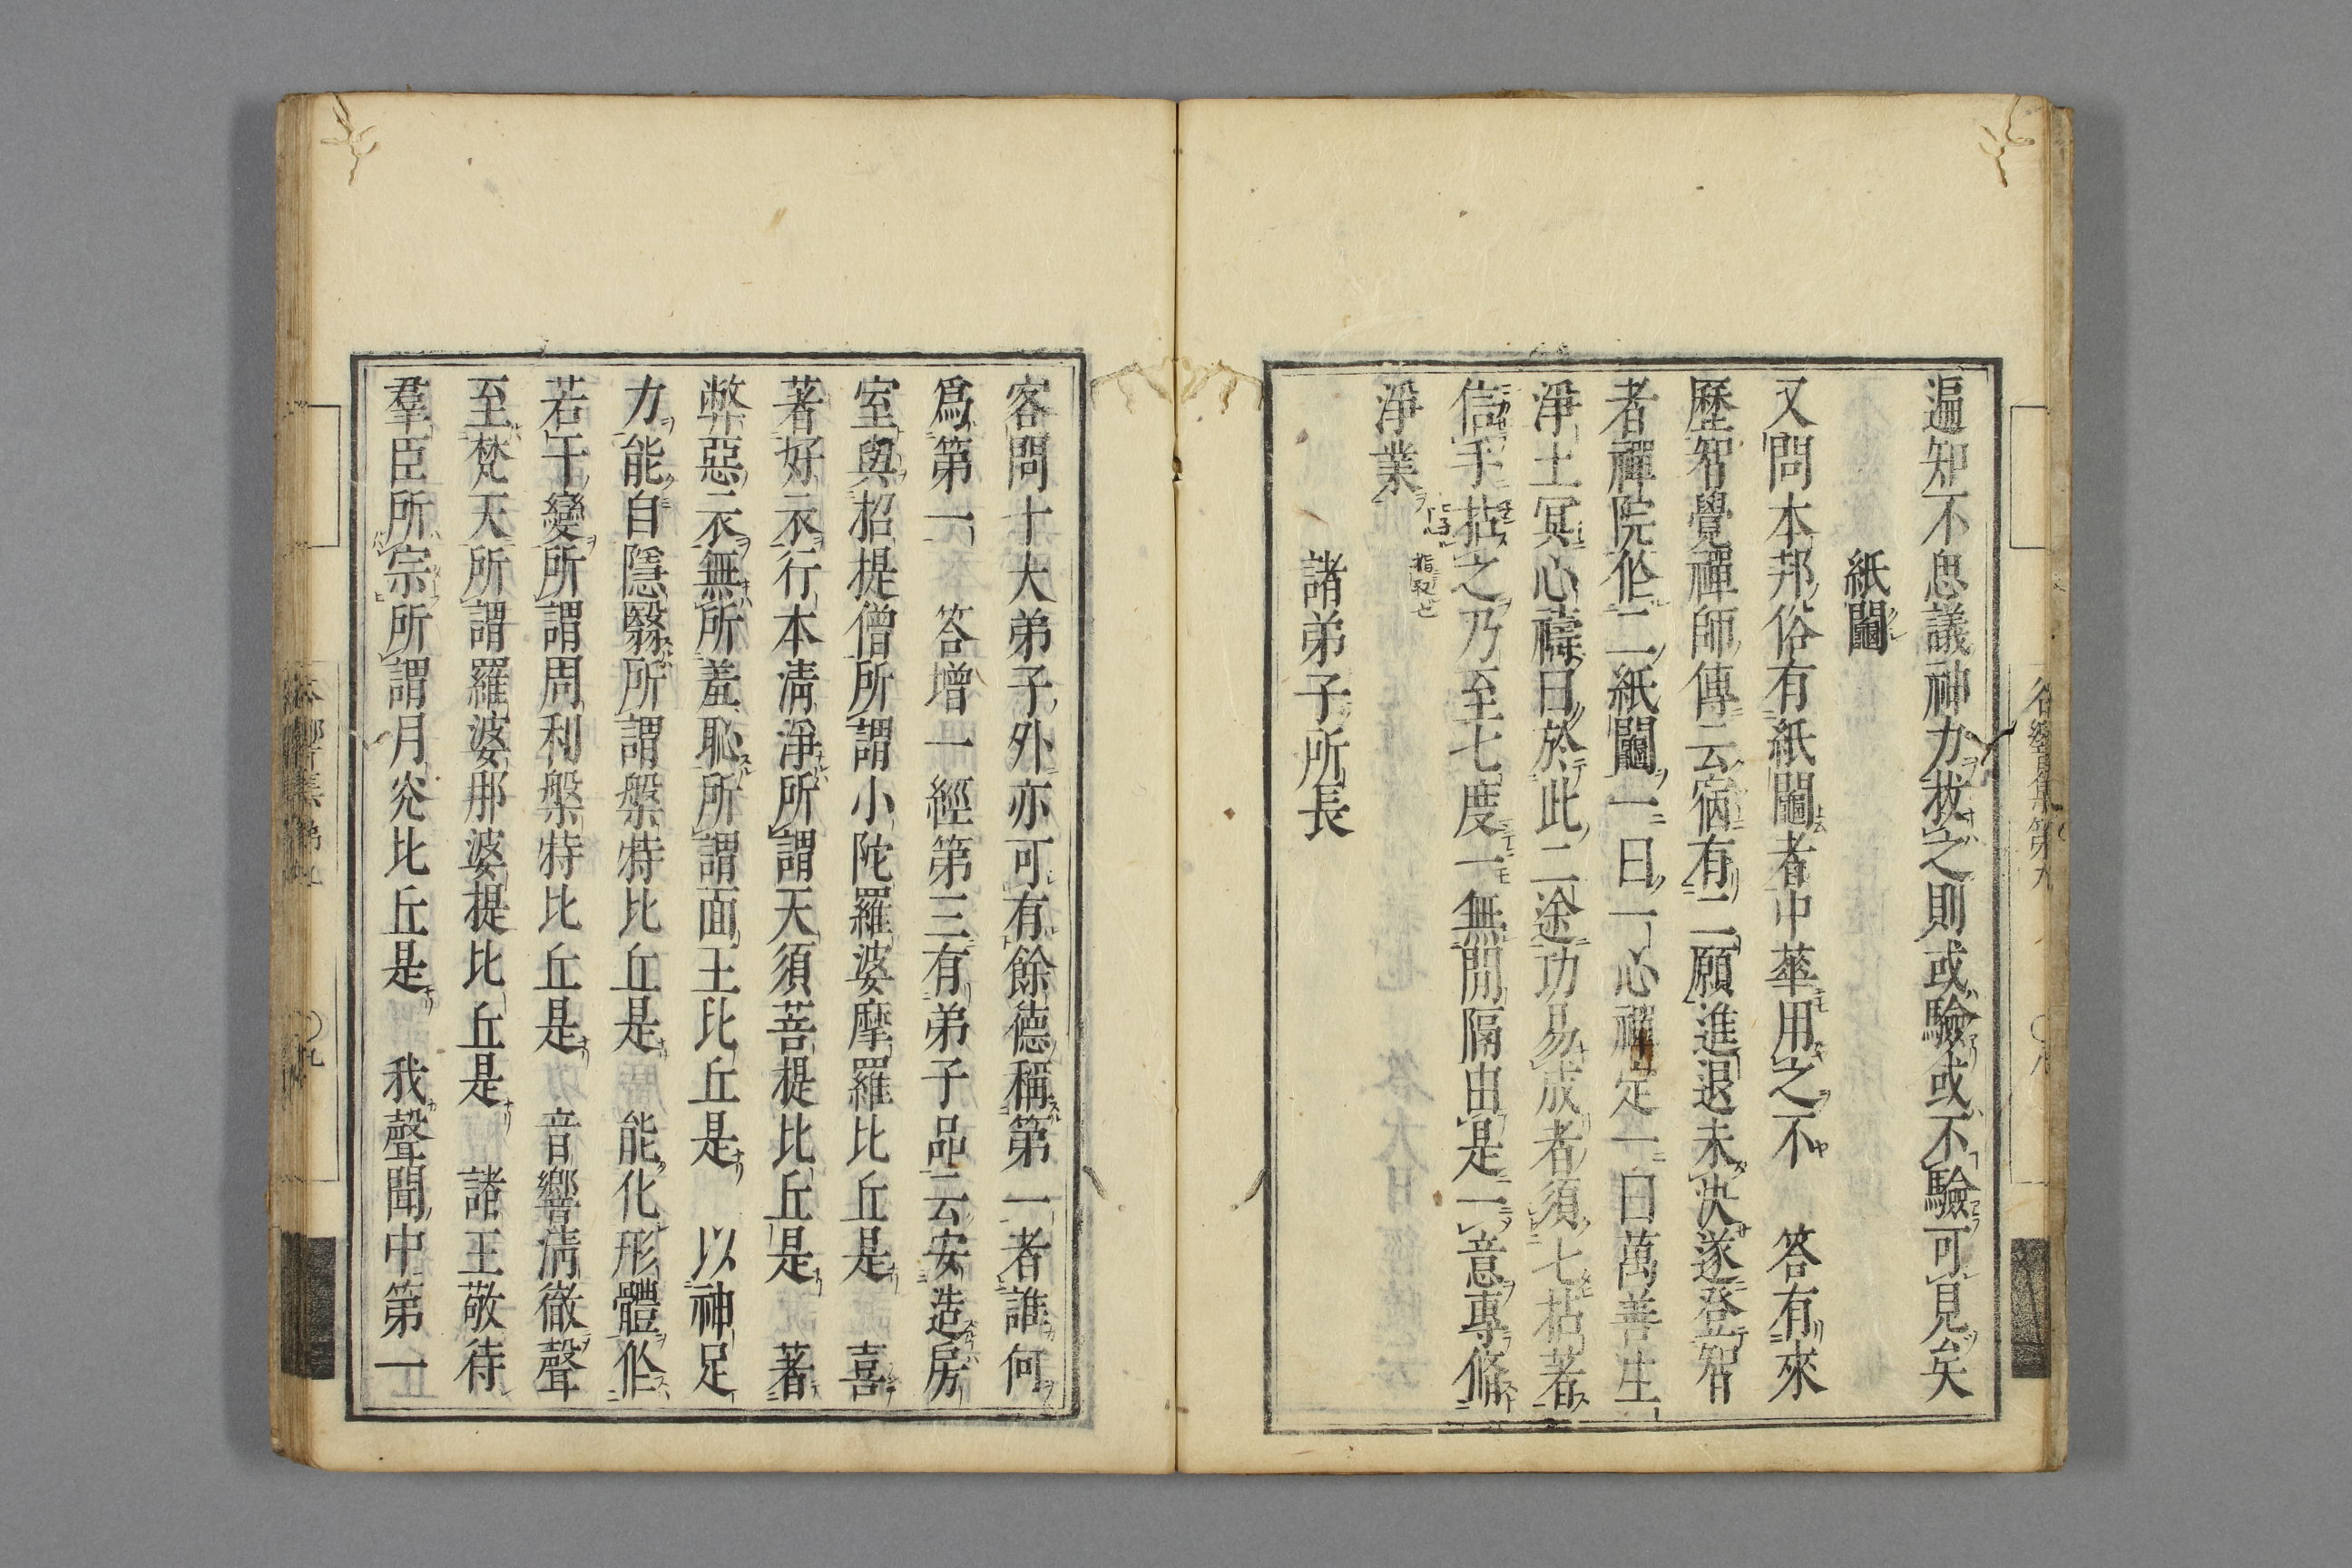 遍知不思議神力救之則或驗或不驗可見矣
紙鬮
又問本邦俗有紙鬮者中華用之不　答有來
歷智覺禪師傳云宿有二願進退未決遂登智
者禪院作二紙鬮一曰一心禪定一曰萬善生
淨土冥心禱曰於此二途功易成者須七拈著
信手拈之乃至七度一無間隔由是一意專修
淨業
指取也
諸弟子所長
客問十大弟子外亦可有餘德稱第一者誰何
爲第一　答增一經第三有弟子品云安造房
室與招提僧所謂小陀羅婆摩羅比丘是　喜
著好衣行本清淨所謂天須菩提比丘是　著
弊惡衣無所羞恥所謂面王比丘是　以神足
力能自隱翳所謂槃特比丘是　能化形體作
若干變所謂周利槃特比丘是　音響清徹聲
至梵天所謂羅婆那婆提比丘是　諸王敬待
羣臣所宗所謂月光比丘是　我聲聞中第一
谷響集第九　〇八